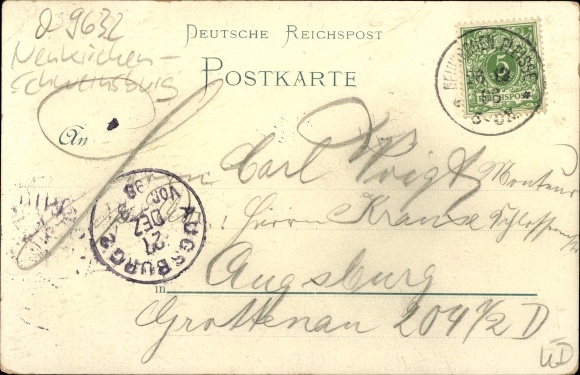 d 9632
Neukirchen-
Schweinsburg
DEUTSCHE REICHSPOST
POSTKARTE
5
REICHSPOST
An
Herrn Carl Voigt, Monteur
Herrn Krause Schlosser
in Augsburg
Grottenau 204 1/2 D
AUGSBURG 2
27
DEZ
VOR
98